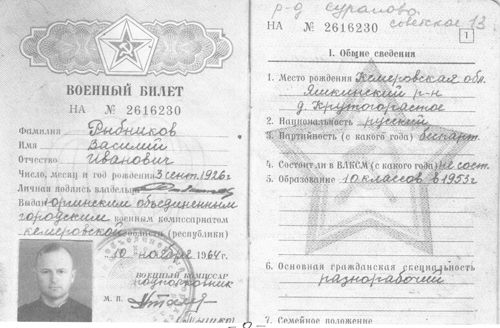 ВОЕННЫЙ БИЛЕТ
НА № 2616230
Фамилия Рыбников
Имя Василий
Отчество Иванович
Число, месяц и год рождения 3 сент. 1926 г
Личная подпись владельца
Выдан Юргинским объединенным
городским военным комиссариатом
кемеровской области (республики)
10 ноября 1964 г.
ВОЕННЫЙ КОМИССАР
подполковник
М. П.
р-д
совенское 13
НА № 2616230
1
I. Общие сведения
1. Место рождения Кемеровская обл.
Яшкинский р-н
д. Крутогорастое
2. Национальность русский
3. Партийность (с какого года) беспарт.
4. Состоял и в ВЛКСМ (с какого года) не сост.
5. Образование 10 классов в 1953 г
6. Основная гражданская специальность
разнорабочий
7. Семейное положение